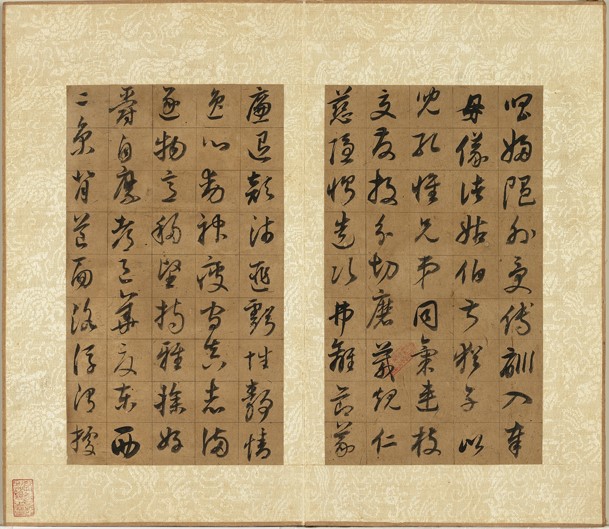 唱婦隨外受傅訓入奉
母儀諸姑伯叔猶子比
兒孔懷兄弟同氣連枝
交友投分切磨箴規仁
慈隱惻造次弗離節義
廉退顛沛匪虧性靜情
逸心動神疲守真志滿
逐物意移堅持雅操好
爵自縻都邑華夏東西
二京背邙面洛浮渭據